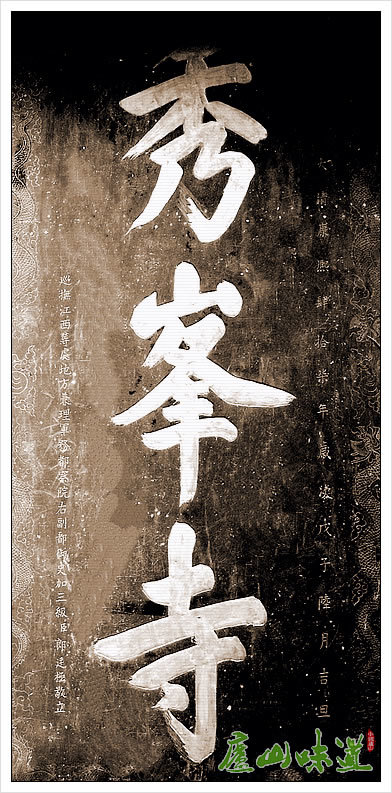 康熙肆拾柒年歲次戊子陸月吉旦
秀峯寺
巡撫江西等處地方兼理軍務都察院右副都御史加三級臣郎廷極敬立
廬山味道